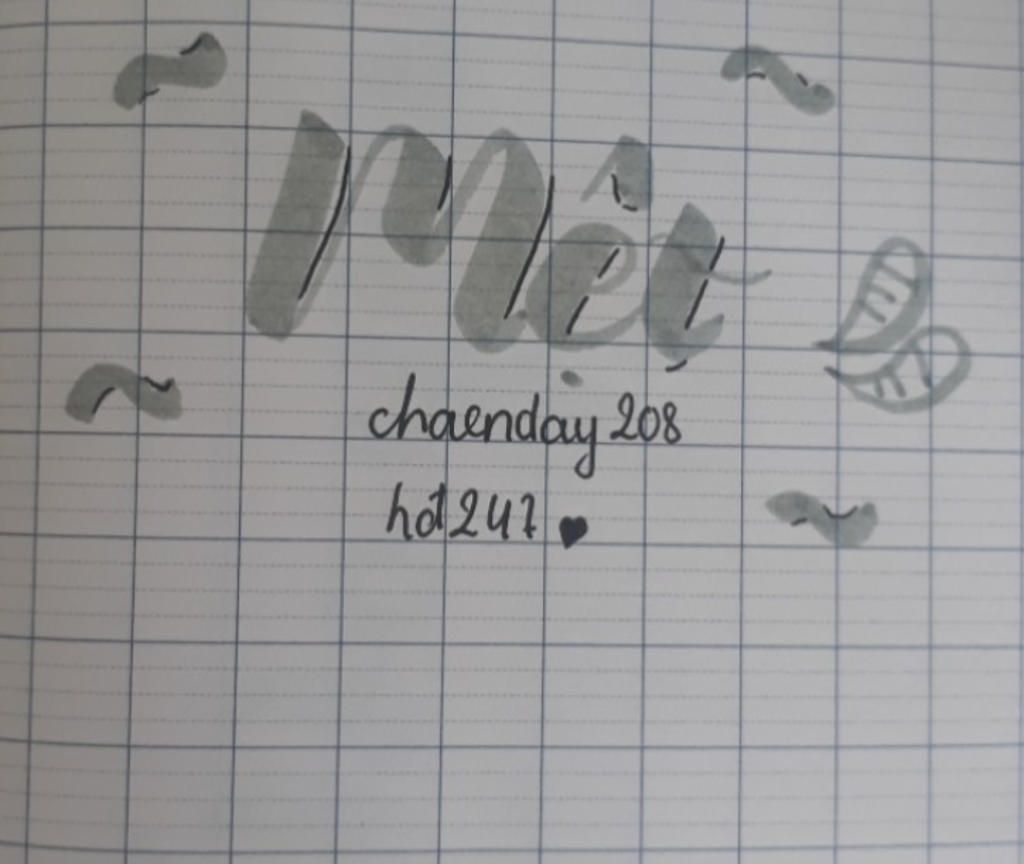 Mệt
chaenday 208
hđ247